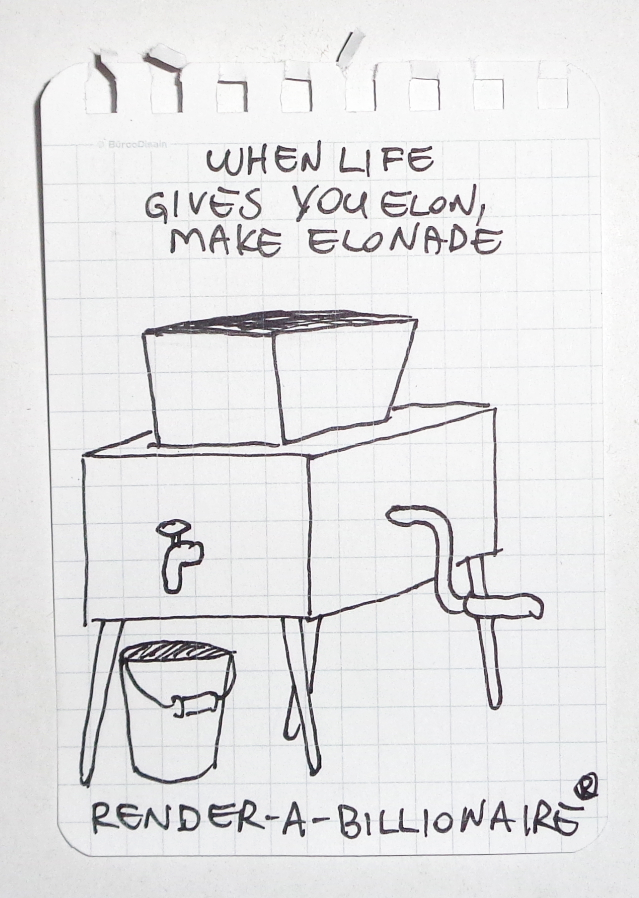 © BüroDesign
WHEN LIFE
GIVES YOU ELON,
MAKE ELONADE
RENDER-A-BILLIONAIRE®